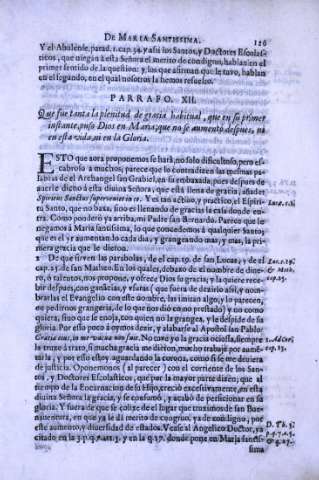 DE MARIA SANTISSIMA. 126
Y el Abulense, parad. 1. cap. 34. y assi los Santos, y Doctores Escolas-
ticos, que niegan à esta Señora el merito de condigno, hablan en el
primer sentido de la question: y, los que afirman que le tuvo, hablan
en el segundo, en el qual nosotros la hemos resuelto.
PARRAFO. XII.
Que fue tanta la plenitud de gracia habitual, que en su primer
instante, puso Dios en Maria, que no se aumentò despues, ni
en esta vida, ni en la Gloria.
ESTO que aora proponemos se harà, no solo dificultoso, pero es-
cabroso à muchos; parece que lo contradicen las mesmas pa-
labras de el Archangel san Grabiel, en su embaxada, pues despues de
averle dicho à esta divina Señora, que està llena de gracia, añade:
Spiritus Sanctus superveniet in te. Y es tan activo, y practico, el Espiri-
tu Santo, que no basa, sino es llenando de gracias la casa donde en-
tra. Como ponderò ya arriba, mi Padre san Bernardo. Parece que le
negamos à Maria santissima, lo que concedemos à qualquier Santo;
que es el yr aumentando la cada dia, y grangeando mas, y mas, la pri-
mera gracia que le dieron.
Luc. 1. 1b.
2 De que sirven las parabolas, de el cap. 19. de san Lucas, y de el
cap. 25. de san Matheo. En los quales, debaxo de el nombre de dine-
ro, ò talentos, nos propone, y ofrece Dios su gracia, y la quiere rece-
bir despues, con ganācias, y usuras (que fuera de dezirlo assi, y nom-
brarlas el Evangelio con este nombre, las intiman algo, y lo parecen,
en pedirnos grangeria, de lo que nos diò co no prestado) y no como
quiera, sino que se enoja, con quien no la grangea, y le despide de su
gloria. Por esso poco à oymos dezir, y alabarse al Apostol san Pablo:
Gratia eius, in me vacua non fuit. No tuvo yo la gracia ociosa, siempre
la truxe à trato, si mucha gracia me dieron, mucho trabajo por aumē-
tarla, y por esso estoy aguardando la corona, como si se me deviera
de justicia. Oponemonos (al parecer) con el corriente de los San-
tos, y Doctores Escolasticos, que por la mayor parte dizen, que al
tiempo de la Encarnacion de su Hijo, creciò excessivamente, en esta
divina Señora la gracia, y se consumò, y acabò de perficionar en su
gloria. Y fuera de que se colige de el lugar que truximos de san Bue-
naventura, en que ya le dà merito de congruo, ya de condigno, por
este aumento, y diversidad de estados. Vease al Angelico Doctor, ya
citado en la 3. p. q. 7. art. 3. y en la q. 27. donde pone en Maria sanctis-
sima
Luc. c. 19.
& Math.
cap. 25.
1. Ad Cor.
cap. 15.
D. Th. 3.
p. q. 7. a. 3.
& q. 27.